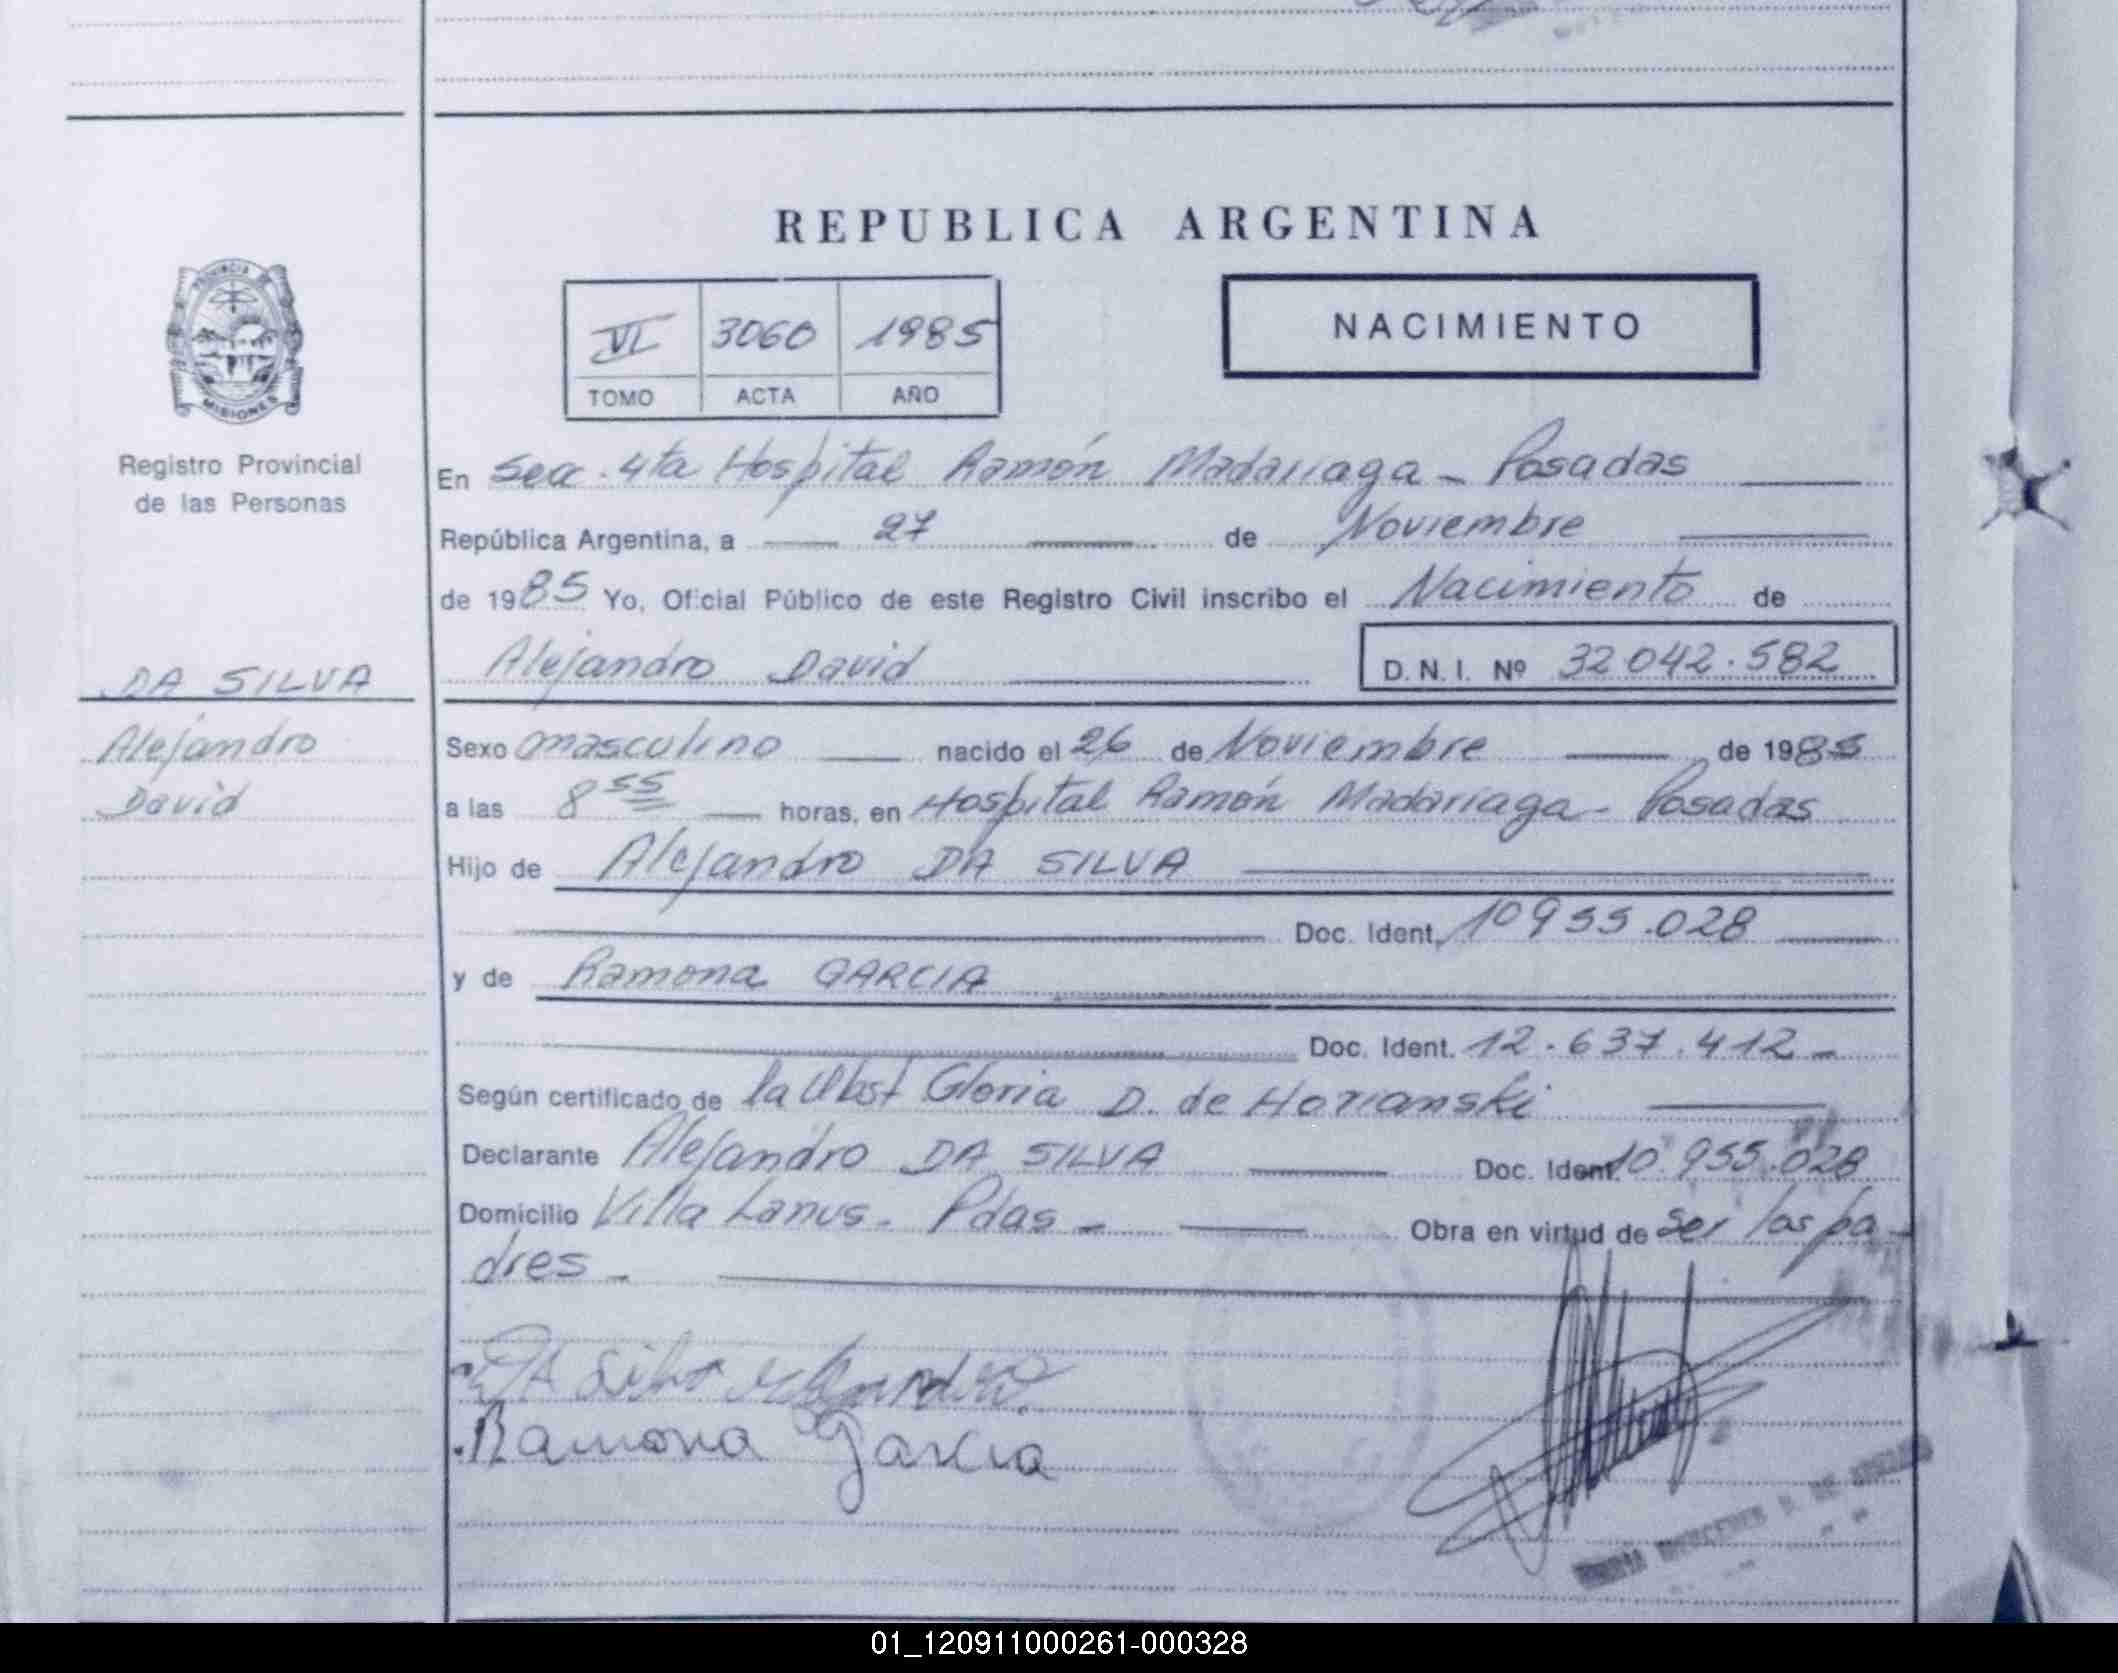 REPUBLICA ARGENTINA
PROVINCIA
MISIONES
Registro Provincial
de las Personas
VI 3060 1985
TOMO ACTA AÑO
NACIMIENTO
En Secc. 4ta Hospital Ramón Madariaga - Posadas
República Argentina, a 27 de Noviembre
de 1985 Yo, Oficial Público de este Registro Civil inscribo el Nacimiento de
Alejandro David D.N.I. Nº 32 042.582
DA SILVA
Alejandro
David
Sexo masculino nacido el 26 de Noviembre de 1985
a las 8 55 horas, en Hospital Ramón Madariaga - Posadas
Hijo de Alejandro DA SILVA
Doc. Ident. 10955.028
y de Ramona GARCIA
Doc. Ident. 12.637.412 -
Según certificado de la Obst Gloria D. de Horianski
Declarante Alejandro DA SILVA Doc. Ident. 10.955.028
Domicilio Villa Lanus - Pdas - Obra en virtud de ser los pa-
dres -
Da Silva Alejandro
Ramona Garcia
01_120911000261-000328